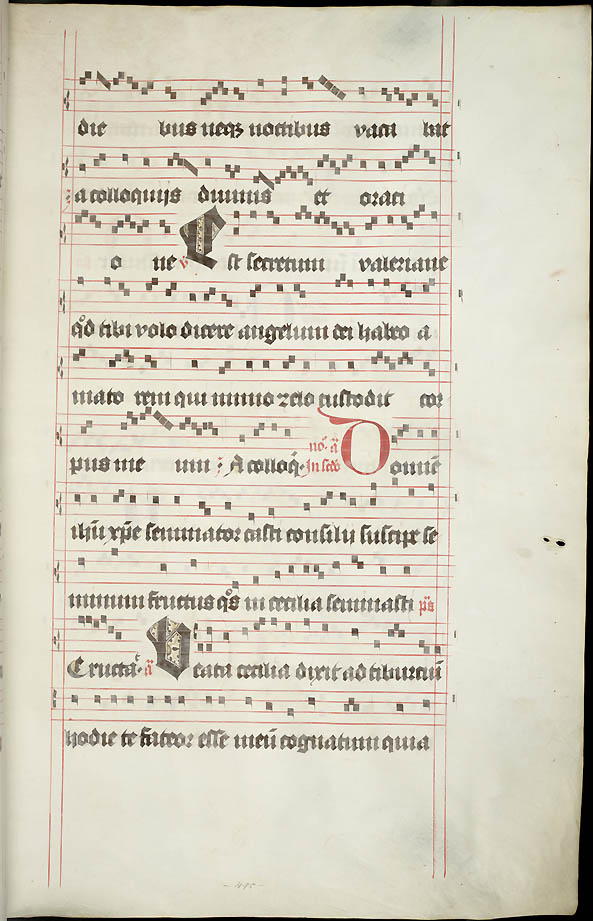 die bus neqȝ noctibus vaca bat
a colloquijs diuinis et orati
o ne ℣ Est secretum valeriane
qd tibi volo dicere angelum dei habeo a
mato rem qui nimio zelo custodit cor
pus me um A colloq̄ In scd̄o no. a Domīe
ihū xp̄e seminator casti consilij suscipe se
minum fructus qs in cecilia seminasti ps
Eructa a Beata cecilia dixit ad tiburciū
hodie te fateor esse meū cognatum quia